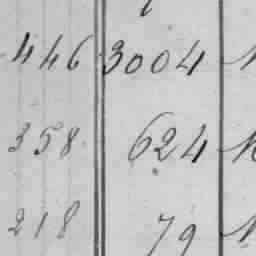 446 3004
358 624
218 79